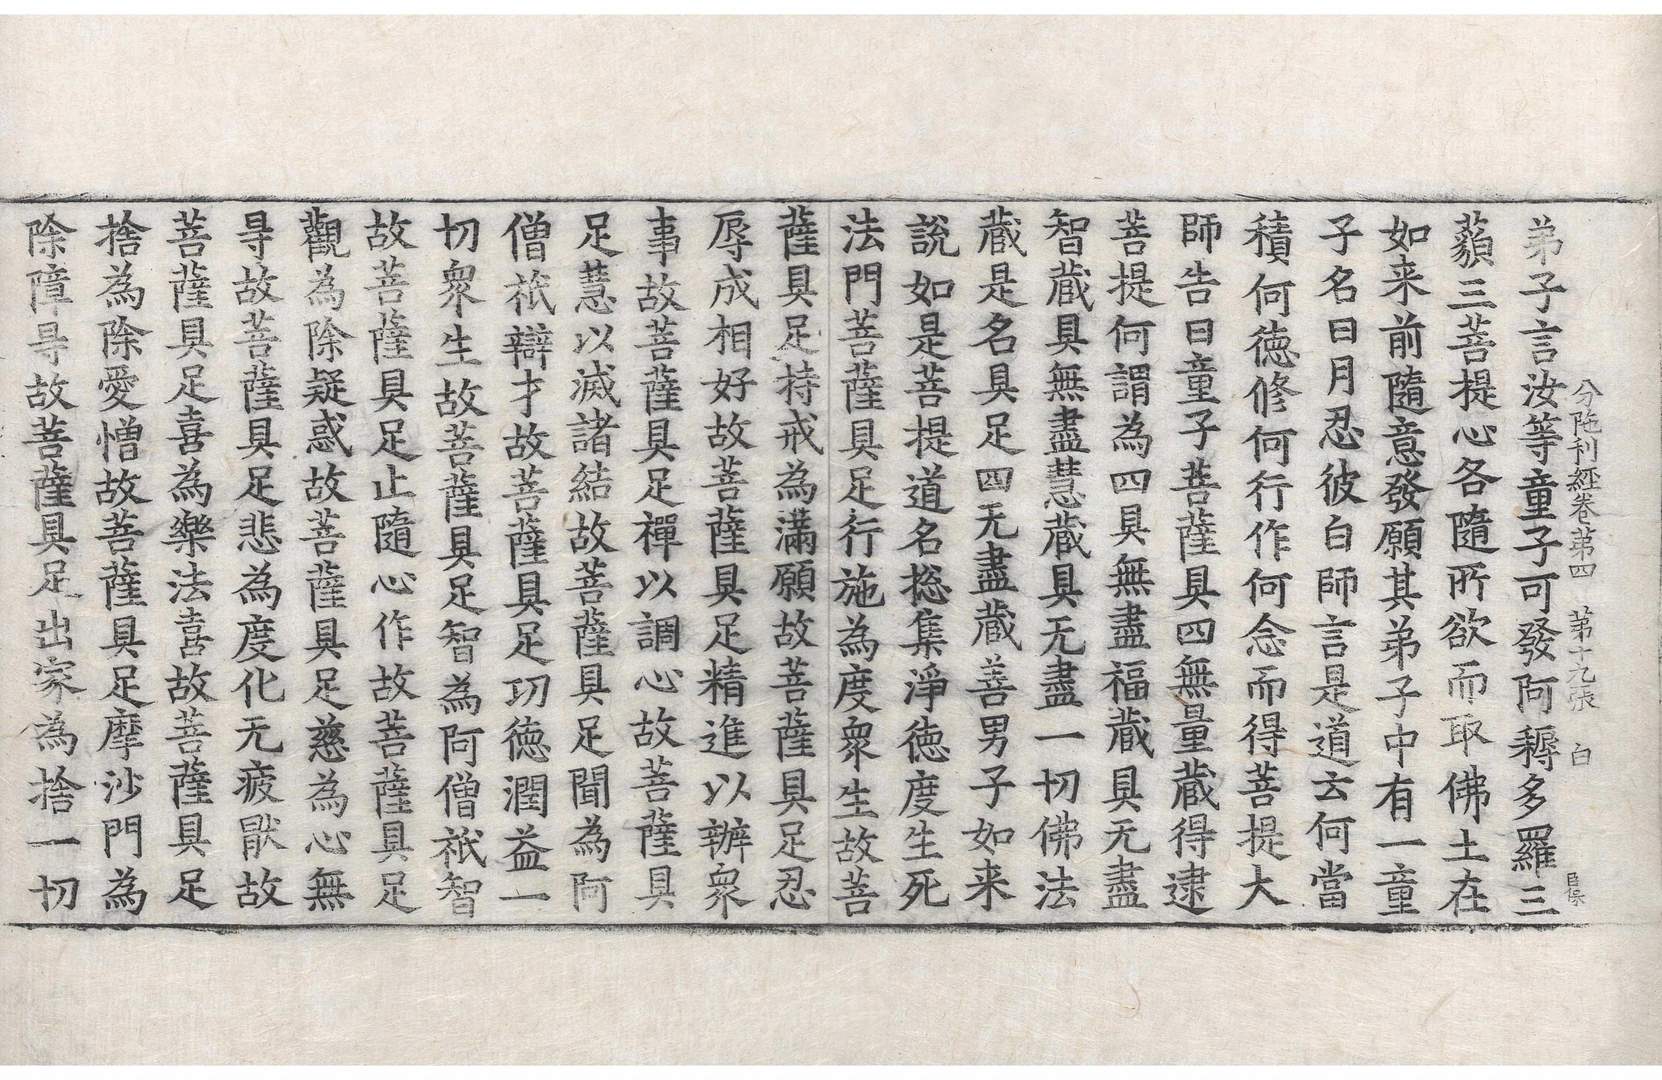 分陁利經卷第四　第十九張　白
弟子言汝等童子可發阿耨多羅三
藐三菩提心各隨所欲而取佛土在
如来前隨意發願其弟子中有一童
子名曰月忍彼白師言是道云何當
積何徳修何行作何念而得菩提大
師告曰童子菩薩具四無量藏得逮
菩提何謂為四具無盡福藏具无盡
智藏具無盡慧藏具无盡一切佛法
藏是名具足四无盡藏善男子如来
說如是菩提道名揔集淨徳度生死
法門菩薩具足行施為度衆生故菩
薩具足持戒為滿願故菩薩具足忍
辱成相好故菩薩具足精進以辦衆
事故菩薩具足禪以調心故菩薩具
足慧以滅諸結故菩薩具足聞為阿
僧祇辯才故菩薩具足功徳潤益一
切衆生故菩薩具足智為阿僧祇智
故菩薩具足止隨心作故菩薩具足
觀為除疑惑故菩薩具足慈為心無
㝵故菩薩具足悲為度化无疲猒故
菩薩具足喜為樂法喜故菩薩具足
捨為除愛憎故菩薩具足摩沙門為
除障㝵故菩薩具足出家為捨一切